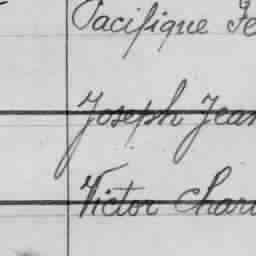 Pacifique Fe
Joseph Jean
Victor Char